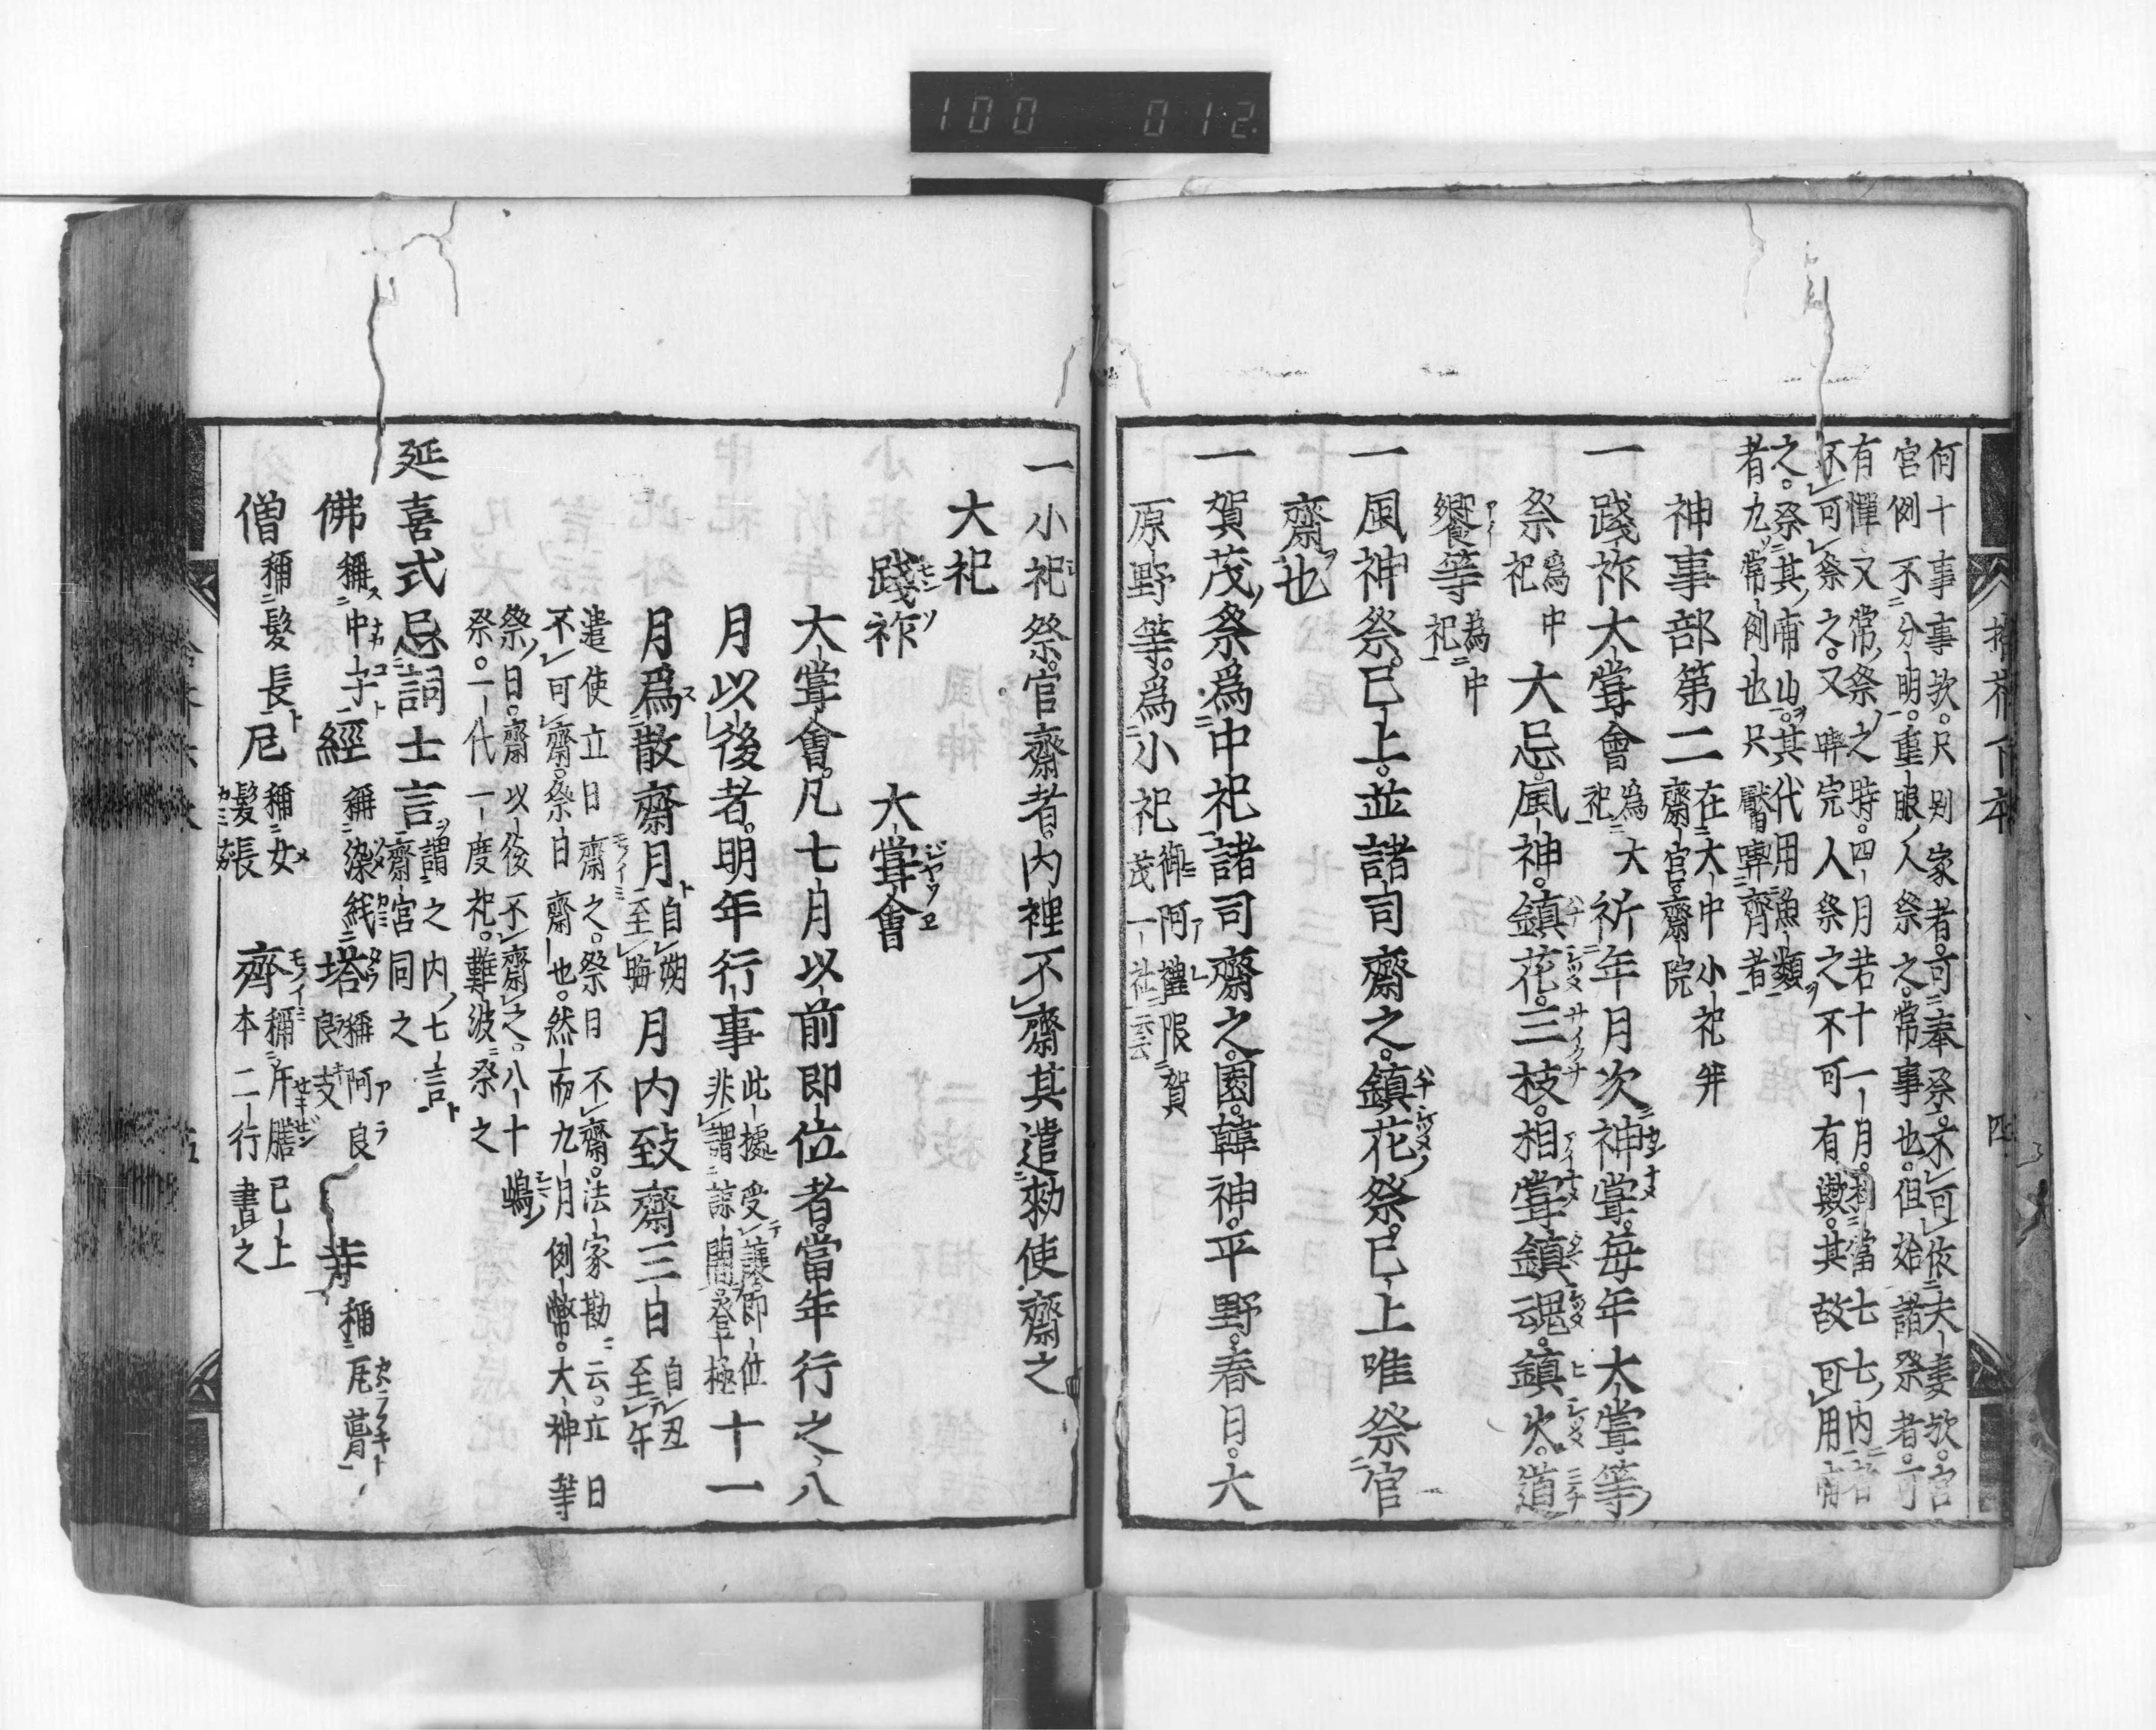 100 012
何十事事欤。尺别家者。可奉祭。不可依夫妻欤。官
官例不分明。重服人祭之。常事也。但始諸祭者。可
有憚又常祭之時。四月若十一月。相當七七内者
不可祭之。又啤完人祭之不可有歟。其故可用
之。祭其。其代用魚類
者九常例也尺
神事部第二
在大中小祀并
齋官。齋院
一踐祚大甞會為大祀祈年月次神甞。毎年大甞等
祭為中祀大忌。風神。鎮花。三枝。相甞鎮魂。鎮火。道
饗等為中祀
一風神祭。已上。並諸司齋之。鎮花祭。已上唯祭官
齋也
一賀茂祭為中祀諸司齋之。園。韓神。平野。春日。大
原野等。為小祀御阿禮限賀茂一社云云
一小祀祭。官齋者。内裡不齋其遣勅使齋之
大祀
踐祚 大甞會
大甞會。凡七月以前即位者。當年行之八
月以後者。明年行事
此據受讓即位
非謂諒闇。登極
十一
月爲散齋月
自朔
至晦
月内致齋三日
自丑
至午
遣使立日齋之。祭日不齋。法家勘云。立日
不可齋。祭日齋也。然而九月例幣。大神等
祭日。齋以後不齋之。八十嶋
祭。一代一度祀。難波祭之
延喜式忌詞士言
謂之内七言
齋宮同之
佛稱中子經稱染紙塔稱阿良良支寺稱瓦葺
僧稱髪長尼稱女髪長齊稱片膳已上
本二行書之